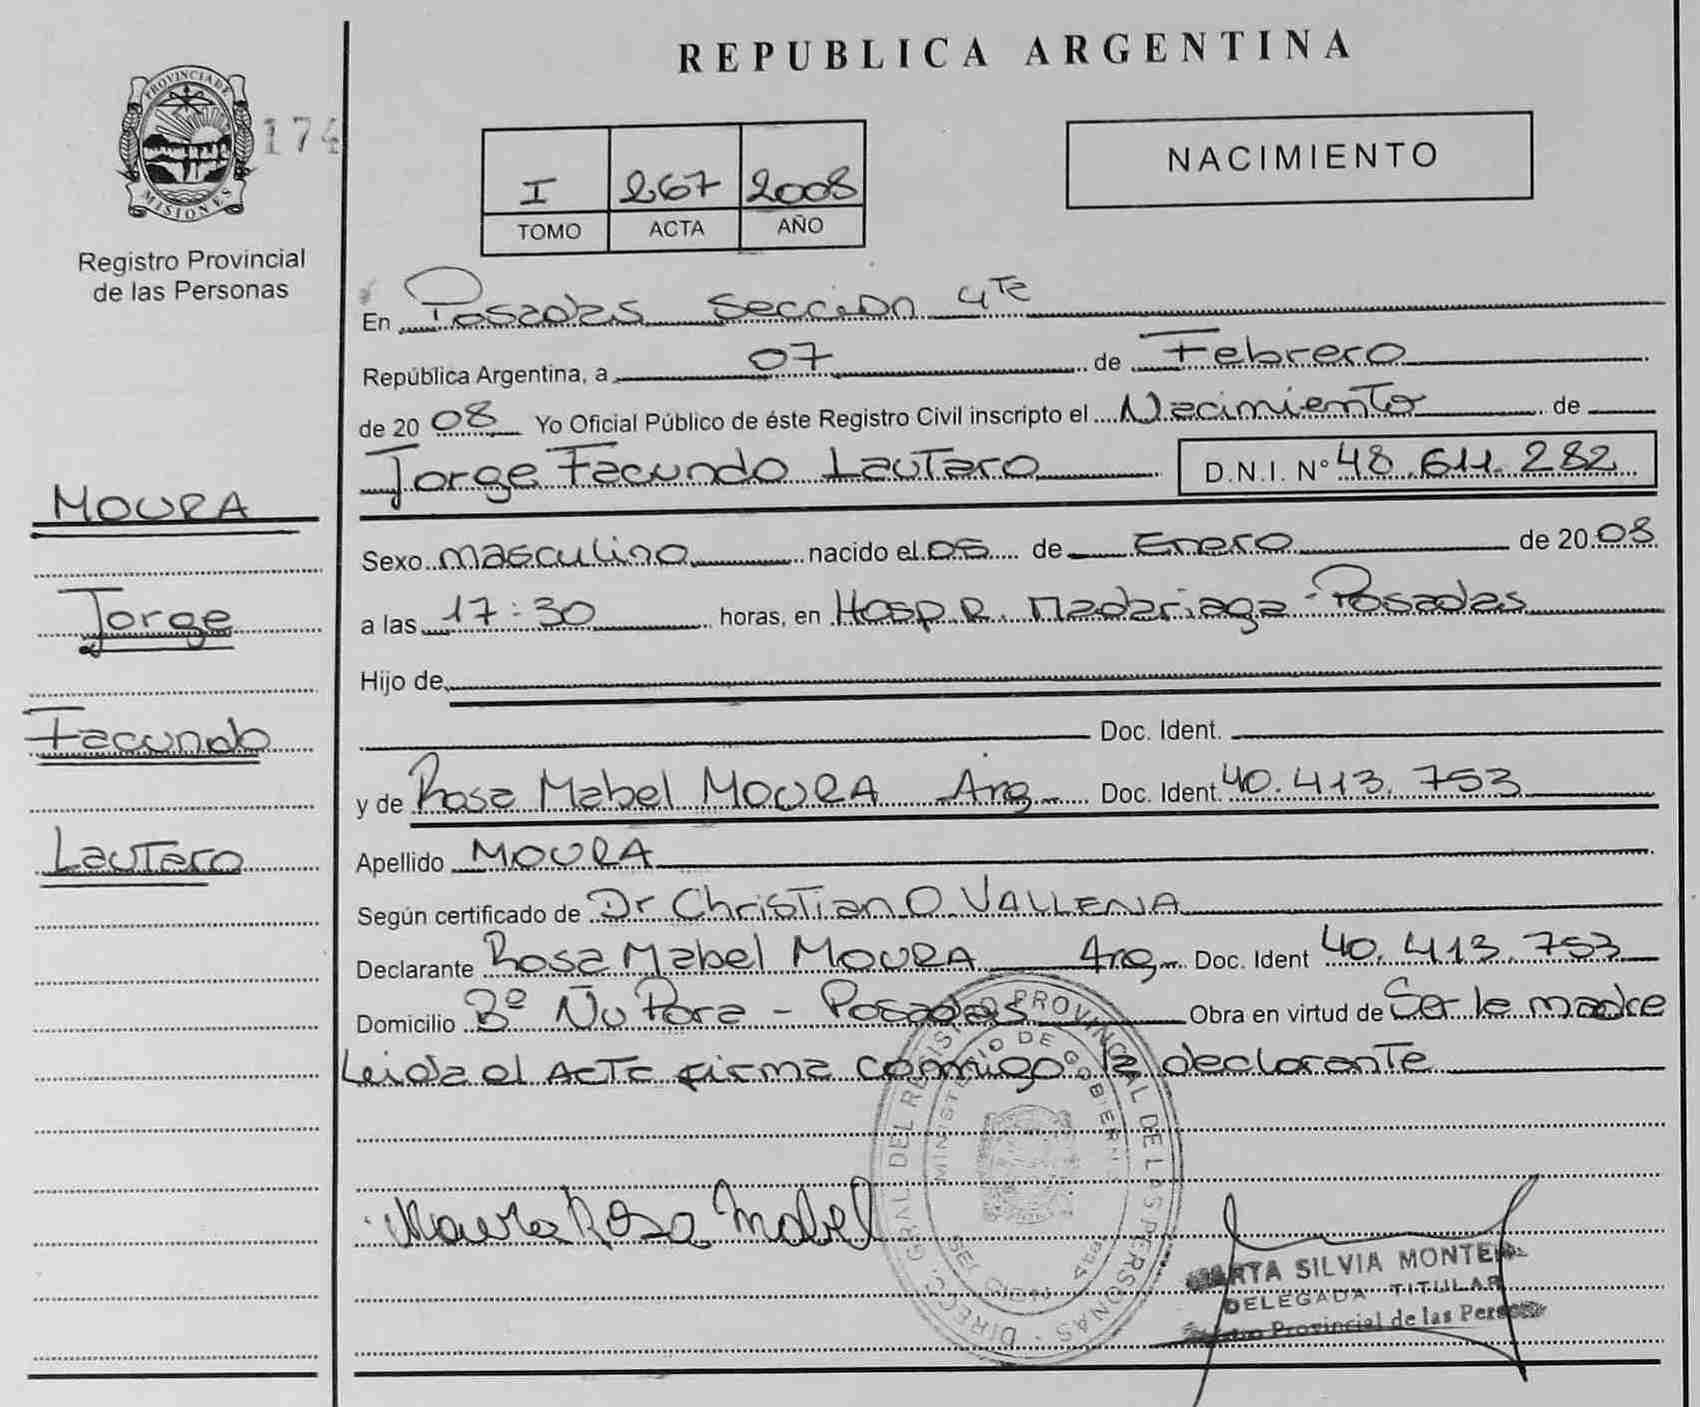 REPUBLICA ARGENTINA
PROVINCIA DE
MISIONES
174
Registro Provincial
de las Personas
I 267 2008
TOMO ACTA AÑO
NACIMIENTO
En Posadas Sección 4ta
República Argentina, a 07 de Febrero
de 2008 Yo Oficial Público de éste Registro Civil inscripto el Nacimiento de
Jorge Facundo Lautaro D.N.I. N° 48.611.282
MOURA
Jorge
Facundo
Lautaro
Sexo masculino nacido el 05 de Enero de 2008
a las 17:30 horas, en Hosp. R. Madariaga - Posadas
Hijo de
Doc. Ident.
y de Rosa Mabel MOURA Arg Doc. Ident. 40.413.753
Apellido MOURA
Según certificado de Dr Christian O VALLENA
Declarante Rosa Mabel MOURA Arg Doc. Ident 40.413.753
Domicilio Bº Ñu Pora - Posadas Obra en virtud de Ser la madre
Leida el Acta firma conmigo la declarante
Moura Rosa Mabel
DIREC. GRAL. DEL REGISTRO PROVINCIAL DE LAS PERSONAS
MINISTERIO DE GOBIERN
SECCION 4ta
MARTA SILVIA
DELEGADA TITULAR
Provincial de las